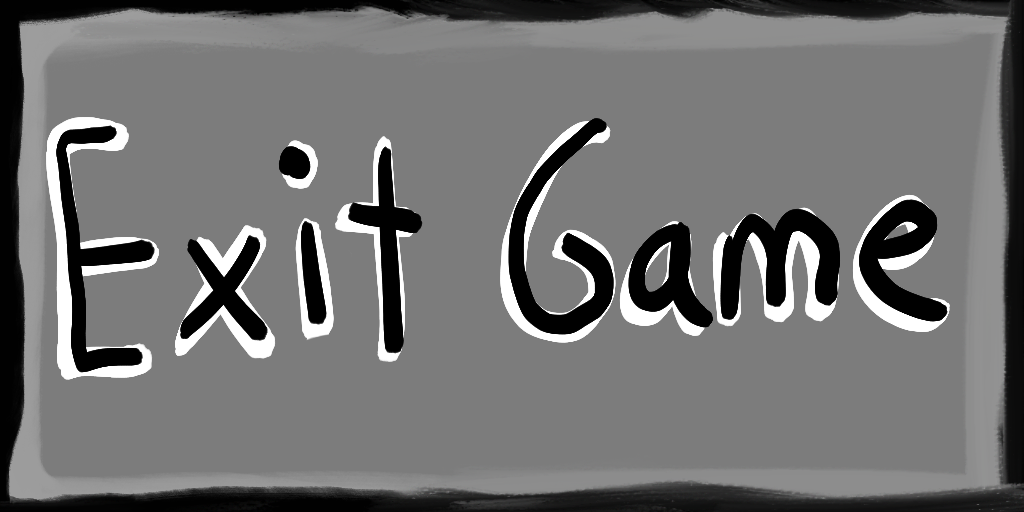 Exit Game